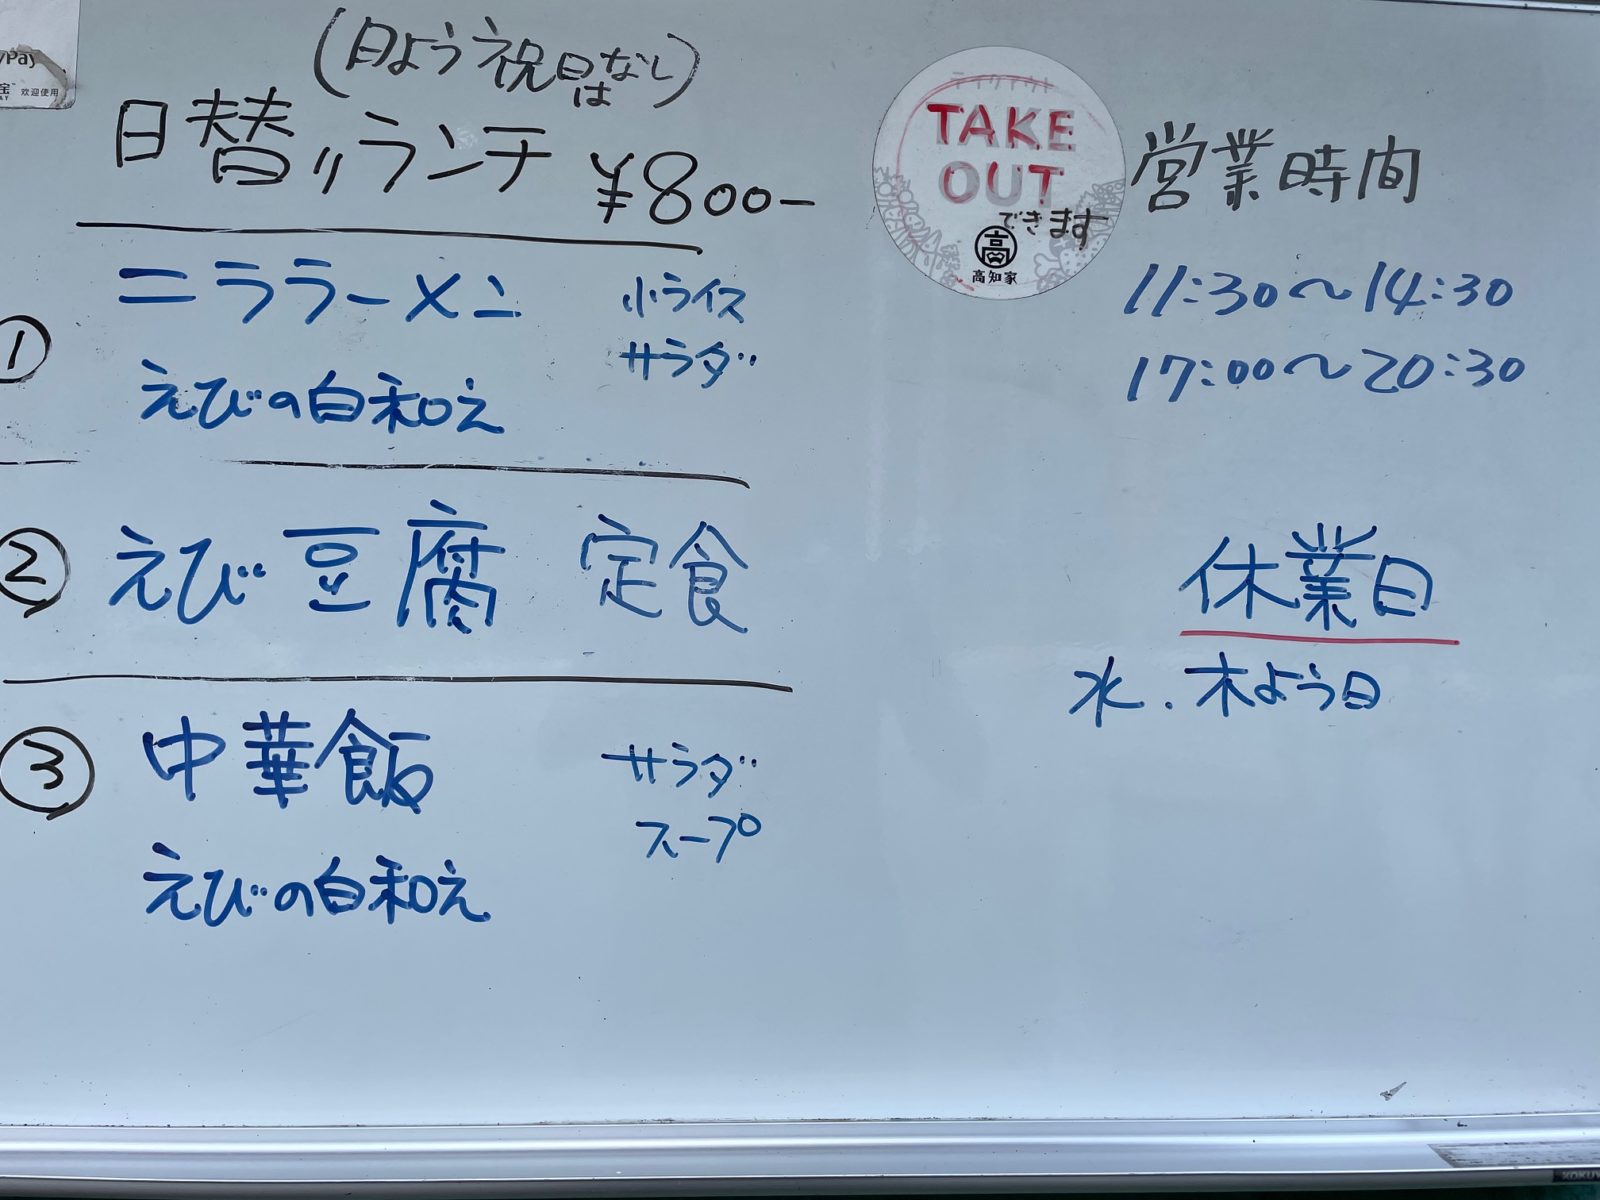 Pay
欢迎使用
(日よう祝日はなし)
日替りランチ ¥800-
① ニララーメン 小ライス
サラダ
えびの白和え
② えび豆腐 定食
③ 中華飯 サラダ
スープ
えびの白和え
TAKE
OUT
できます
高
高知家
営業時間
11:30〜14:30
17:00〜20:30
休業日
水.木よう日